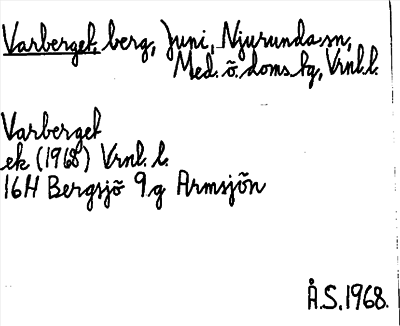 Varberget, berg, Juni, Njurunda sn,
Med. ö. doms hg, Vrnl.l.
Varberget
ek (1968) Vrnl. l.
16H Bergsjö 9 g Armsjön
Å.S. 1968.